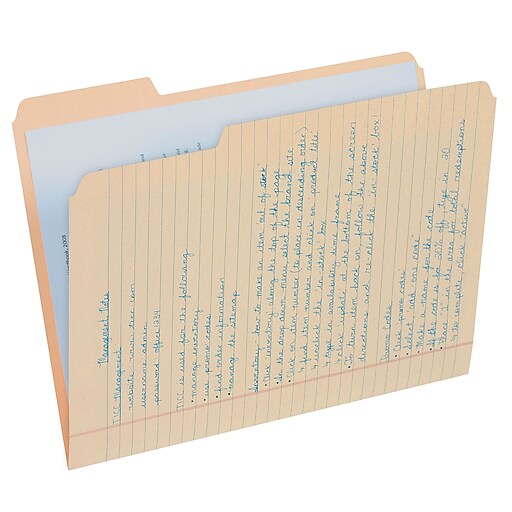 Management Notes
TICC Management
website: www.ticc.com
username admin
password office1234
TICC is used for the following
• manage inventory
• use promo codes
• find order information
• manage the sitemap
Inventory - how to make an item out of stock
• Click inventory along the top of the page
• In the drop down menu select the brand site
• Click on item number (to place in descending order)
↳ find item number and click on product title
↳ unclick the 'in stock' box
↳ type in availability time frame
• click 'update' at the bottom of the screen
• To turn item back on, follow the above
directions and re-click the 'in stock' box!
Promo Codes
• Click 'promo codes'
• Select 'add one code'
• Make a name for the code
• If the code is for 20% off, type in 20
• Place "1" in the area for total redemptions
↳ to complete, click active"
2008